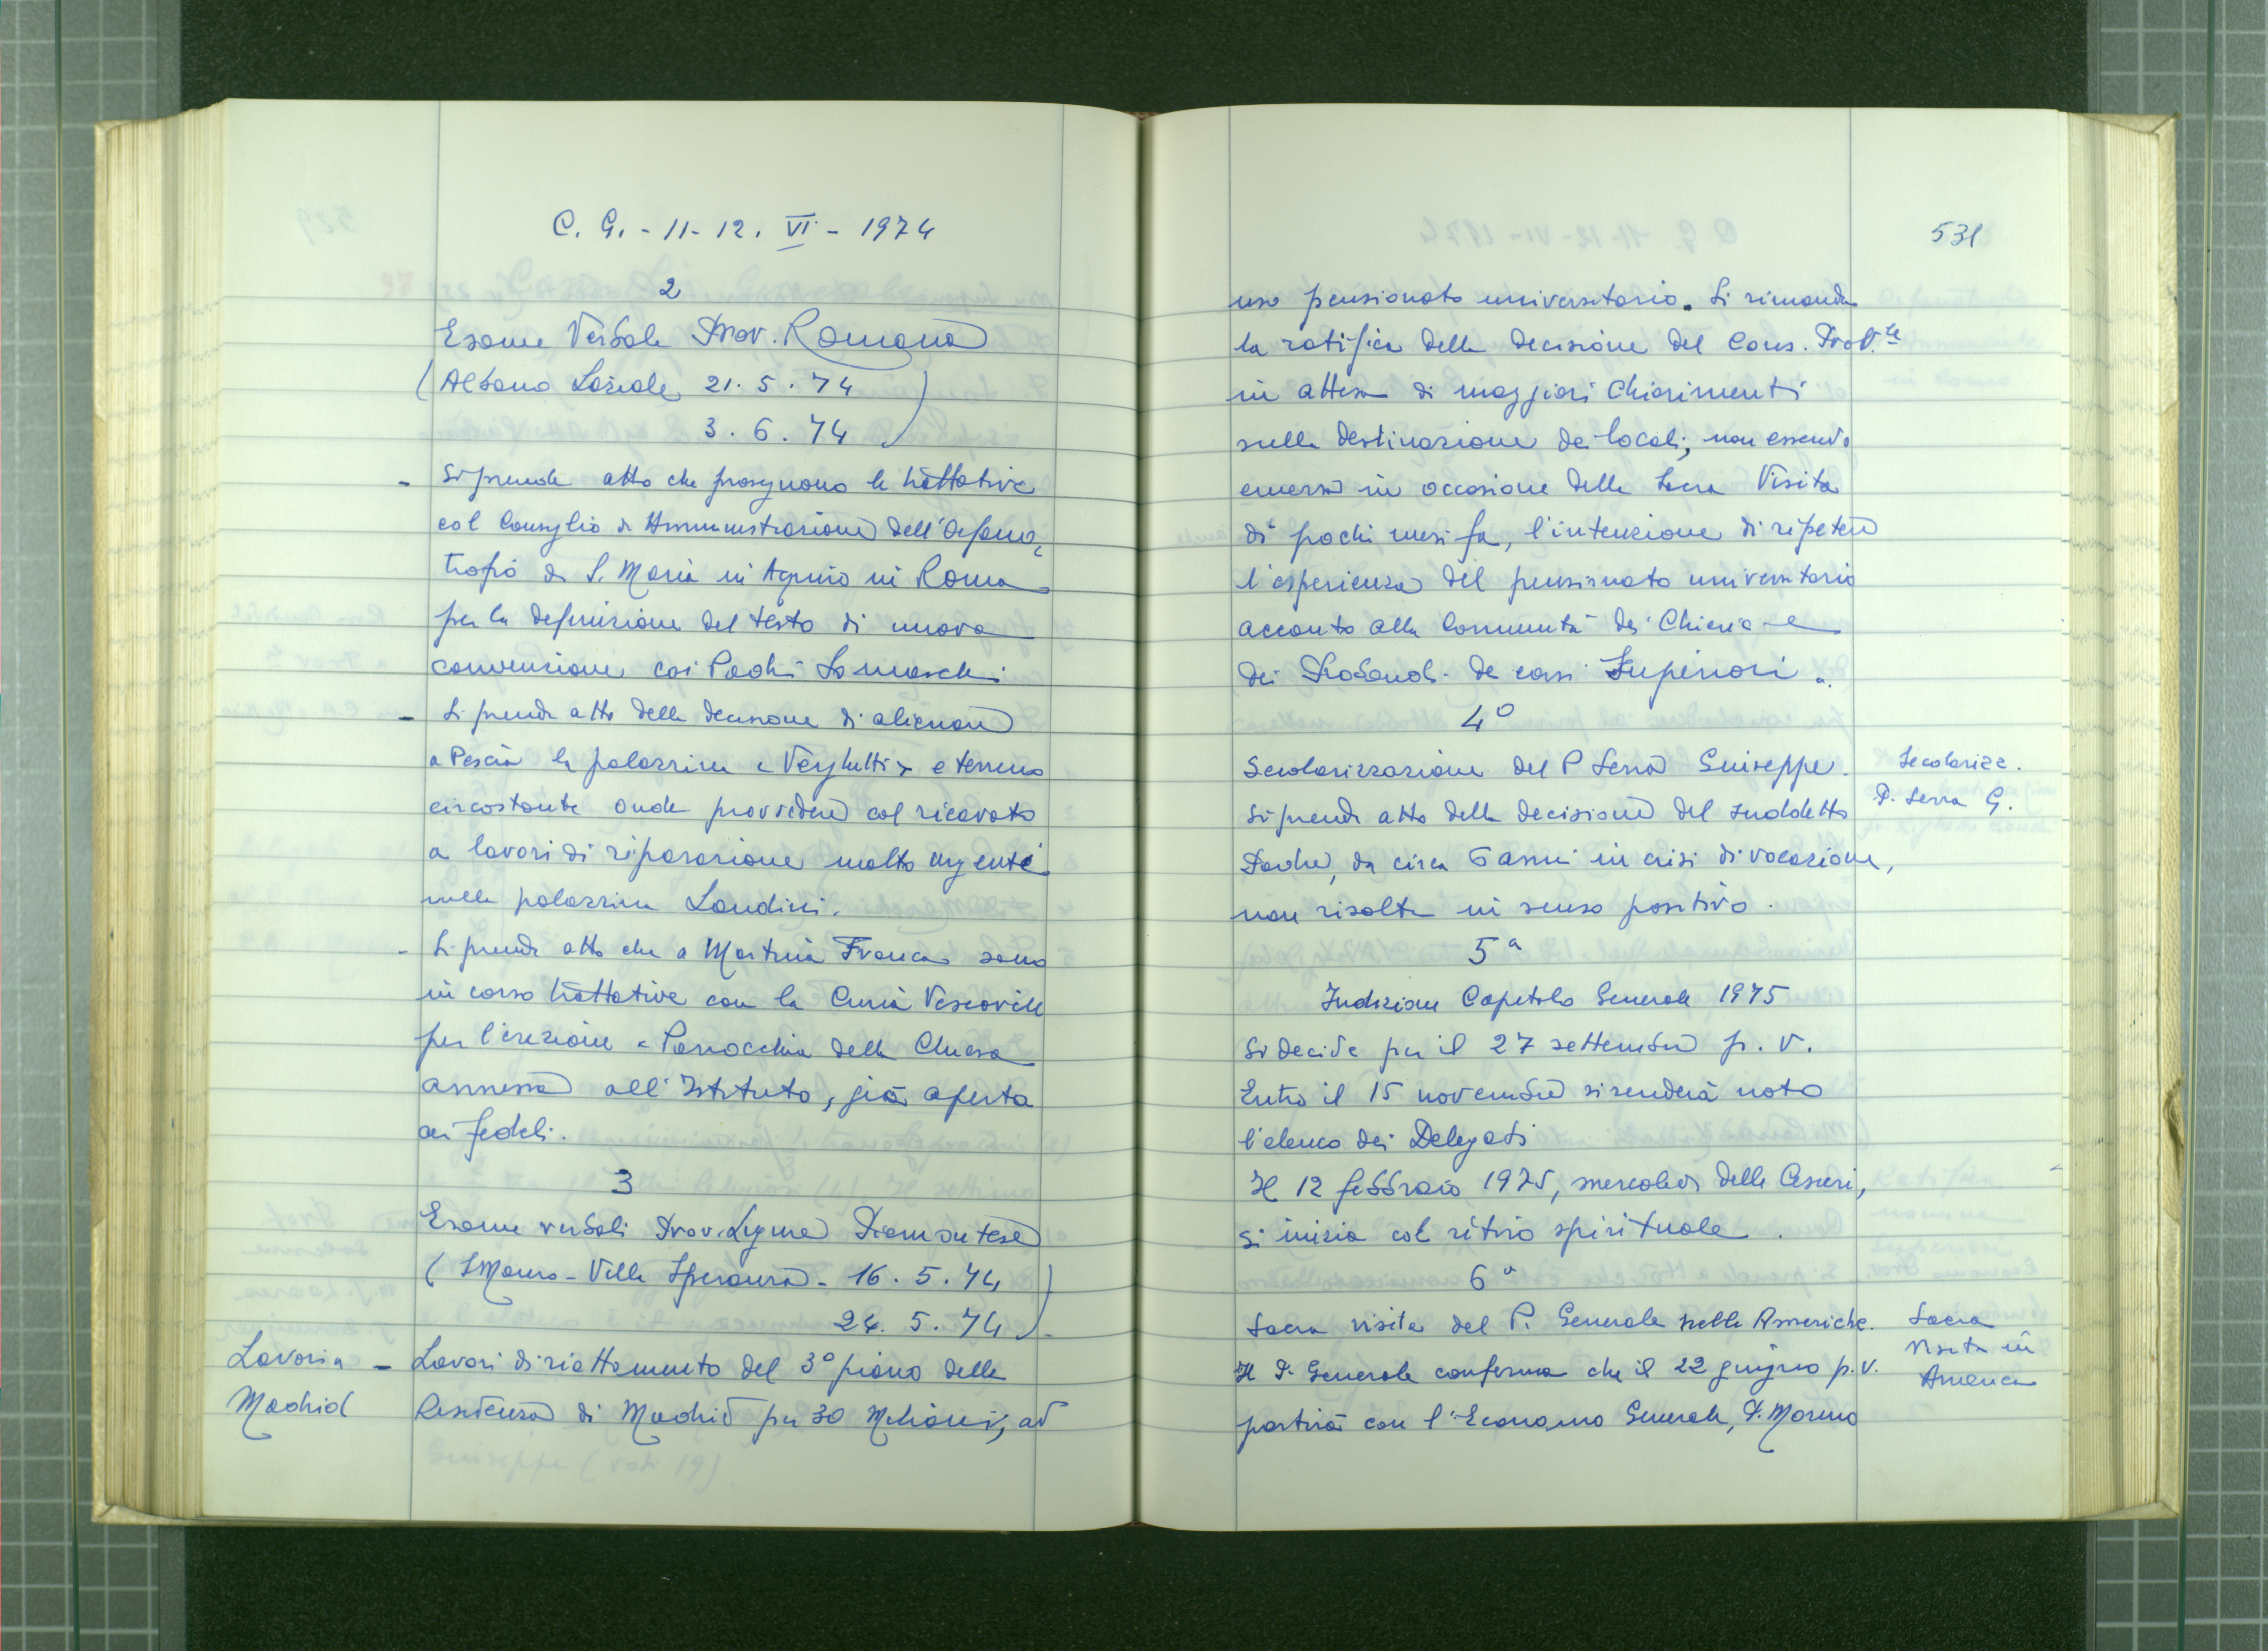 C. G. - 11 - 12. VI - 1974
2
Esame Verbale Prov. Romana
(Albano Laziale 21. 5. 74
3. 6. 74)
- Si prende atto che proseguono le trattative
col Consiglio di Amministrazione dell'Orfano=
trofio di S. Maria in Aquiro in Roma
per la definizione del testo di nuova
convenzione coi Padri Somaschi
- Si prende atto della decisione di alienare
a Pescia la palazzina "Verghetti" e terreno
circostante onde provvedere col ricavato
a lavori di riparazione molto urgenti
nella palazzina Landini.
- Si prende atto che a Martina Franca sono
in corso trattative con la Curia Vescovile
per l'erezione a Parrocchia della Chiesa
annessa all'Istituto, già aperta
ai fedeli.
3
Esame verbali Prov. Ligure Piemontese
(S Mauro - Villa Speranza - 16. 5. 74
24. 5. 74)
Lavori a
Madrid
- Lavori di riattamento del 3° piano della
Residenza di Madrid per 30 Milioni, ad
531
uso pensionato universitario. Si rimanda
la ratifica della decisione del Cons. Prov.le
in attesa di maggiori chiarimenti
sulla destinazione dei locali, non essendo
emersa in occasione della Sacra Visita
di pochi mesi fa, l'intenzione di ripetere
l'esperienza del pensionato universitario
accanto alla Comunità dei Chierici e
dei Probandi dei corsi Superiori.
4°
Secolarizzazione del P Serra Giuseppe.
Secolarizz.
P. Serra G.
Si prende atto della decisione del suddetto
Padre, da circa 6 anni in crisi di vocazione,
non risolta in senso positivo.
5ª
Indizione Capitolo Generale 1975
Si decide per il 27 settembre p. v.
Entro il 15 novembre si renderà noto
l'elenco dei Delegati
Il 12 febbraio 1975, mercoledì delle Ceneri,
si inizia col ritiro spirituale.
6ª
Sacra visita del P. Generale nelle Americhe.
Sacra
Visita in
America
Il P. Generale conferma che il 22 giugno p. v.
partirà con l'Economo Generale, P. Moreno